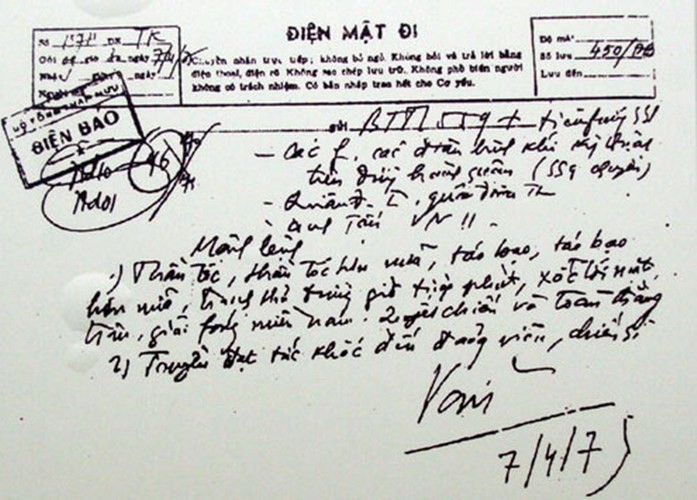 ĐIỆN MẬT ĐI
Số 1574 ĐK TK
ngày 7/4/75
Chuyển nhận trực tiếp; không bỏ ngỏ. Không hỏi và trả lời bằng
điện thoại, điện rõ. Không sao chép lưu trữ. Không phổ biến người
không có trách nhiệm. Có bản nháp trao hết cho Cơ yếu.
Độ mật
Số lưu 450/
Lưu đến
ĐIỆN BÁO
46
gửi BTM 559 + tiền phương 559
- Các f, các đoàn binh khí kỹ thuật
trên đường hành quân (559 chuyển)
- Quân đ., quân đoàn
- anh Tấn VN !!
Mệnh lệnh
1) Thần tốc, thần tốc hơn nữa, táo bạo, táo bạo
hơn nữa, tranh thủ từng giờ từng phút, xốc tới mặt
trận, giải fóng miền nam. Quyết chiến và toàn thắng
2) Truyền đạt tức khắc đến đảng viên, chiến sĩ
Văn
7/4/75